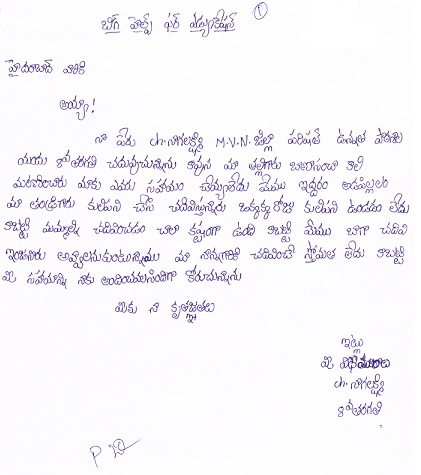 ①
బిగ్ హెల్ప్ ఫర్ ఎడ్యుకేషన్
హైదరాబాద్ వారికి
అయ్యా!
నా పేరు ch. నాగలక్ష్మి M.V.N. జిల్లా పరిషత్ ఉన్నత పాఠశాల
యందు 8వ తరగతి చదువుచున్నాను కావున మా తల్లిగారు కాలి
మరణించారు మాకు ఎవరు సహాయం చెయ్యలేదు మేము ఇద్దరం ఆడపిల్లలం
మా తండ్రిగారు కులిపని చేసి చదివిస్తున్నారు ఒక్కొక్క రోజు కులిపని ఉండడం లేదు
కాబట్టి మమ్మల్ని చదివించడం చాలా కష్టంగా ఉంది కాబట్టి మేము బాగా చదివి
ఇంజనీరు అవ్వాలనుకుంటున్నాము మా నాన్నగారికి చదివించే స్తోమత లేదు కాబట్టి
మీ సహాయాన్ని నాకు అందించవలసిందిగా కోరుచున్నాను
మీకు నా కృతజ్ఞతలు
ఇట్లు
మీ
ch. నాగలక్ష్మి
8వ తరగతి